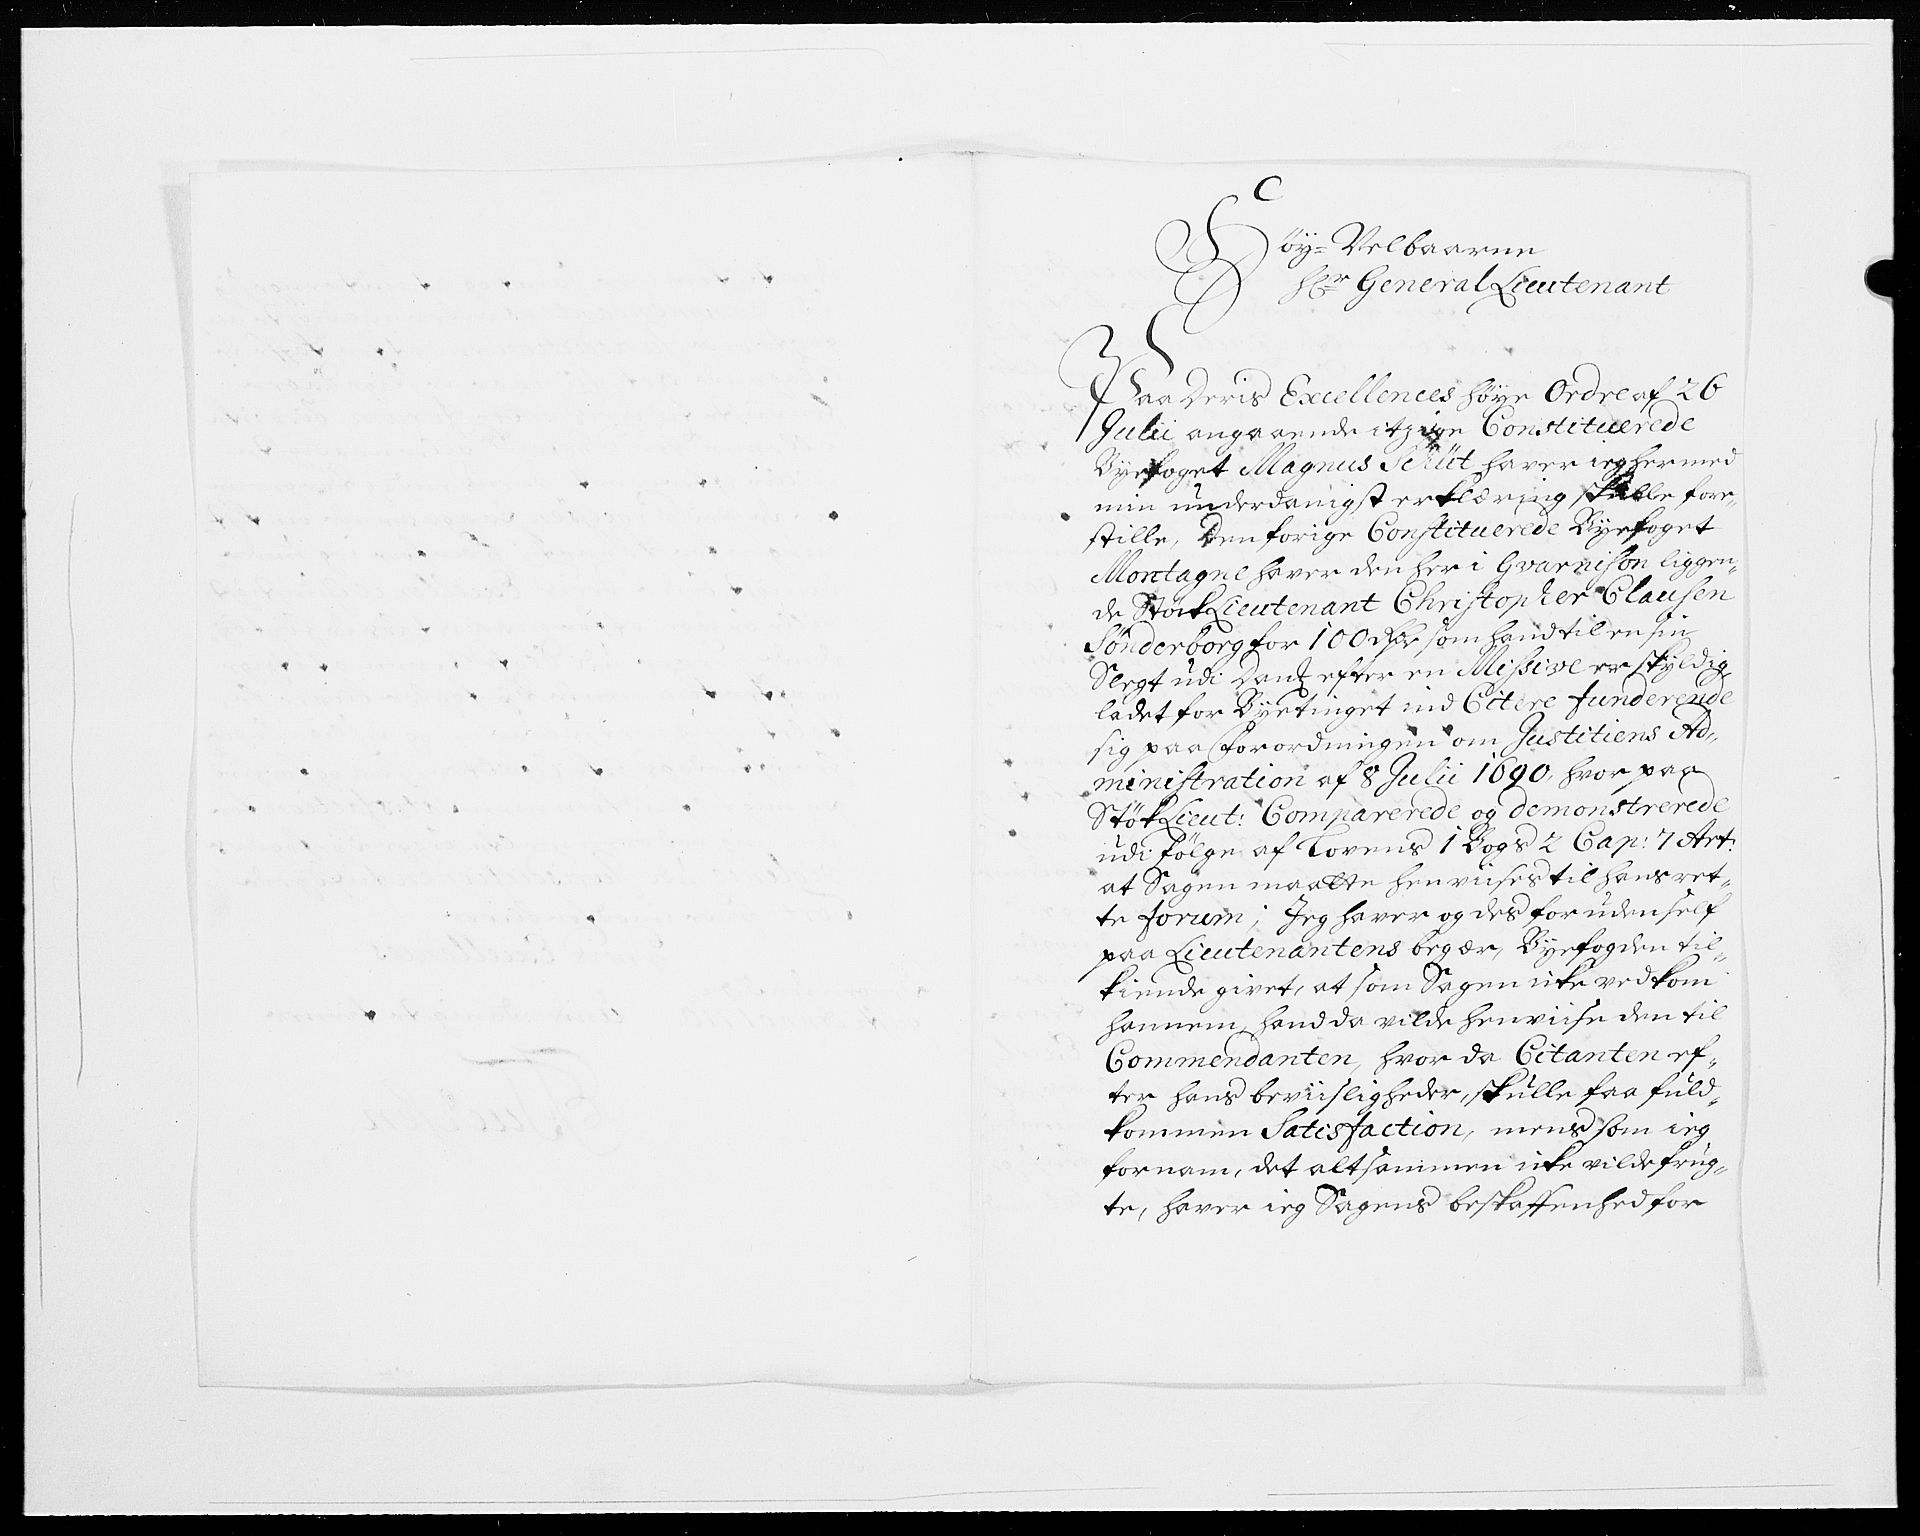 C
Høy- Velbaarne
Hr General Lieutenant
Paa Deris Excellences høye Ordre af 26
Julii angaaende itzige Constituerede
Byefoget Magnus Schüt haver ieg hermed
min underdanigst erklæring skulle fore„
stille, Den forige Constituerede Byefoget
Montagne haver den her i Gvarnison liggen„
de StökLieutenant Christopher Clausen
Sönderborg for 100 Rdr som hand til en sin
Slegt udi Danz efter en Missive er skyldig,
ladet for Byetinget ind Citere funderende
sig paa Forordningen om Justitiens Ad„
ministration af 8 Julii 1690, hvor paa
StökLieut: Comparerede og demonstrerede
udi følge af Lovens 1 Bogs 2 Cap: 7 Art:
at Sagen maatte henviises til hans ret„
te forum; Jeg haver og des foruden self
paa Lieutenantens begær, Byefogden til„
kiende givet, at som Sagen icke vedkom
hannem, hand da vilde henviise den til
Commendanten, hvor da Citanten ef„
ter hans beviisligheder, skulle faa fuld„
kommen Satisfaction, mens som ieg
fornam, det altsammen icke vilde frug„
te, haver ieg Sagens beskaffenhed for